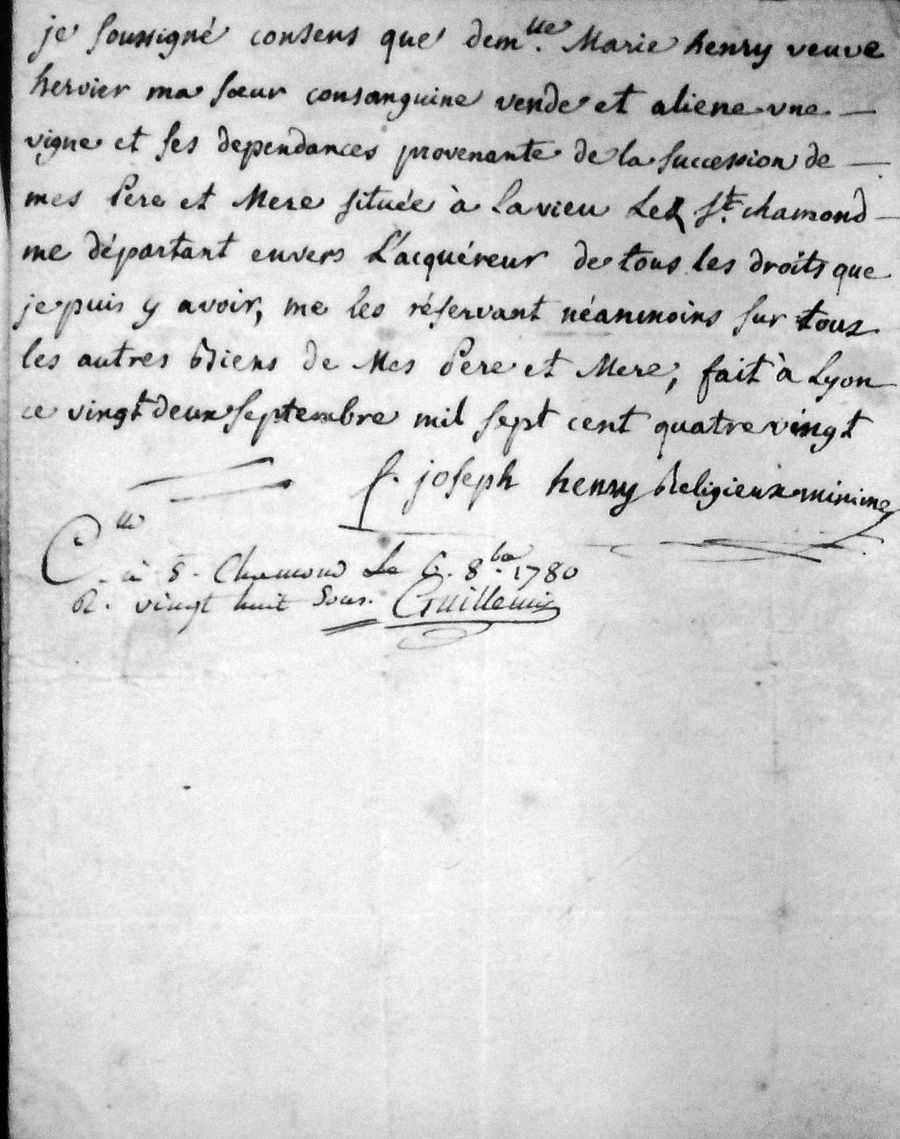 je soussigné consens que dem.lle Marie henry veuve
hervier ma sœur consanguine vende et aliene une —
vigne et ses dependances provenante de la succession de —
mes Pere et Mere située à Lavieu Lez St. chamond —
me départant envers L'acquéreur de tous les droits que
je puis y avoir, me les réservant néanmoins sur tous
les autres Biens de Mes Pere et Mere, fait à Lyon
ce vingt deux septembre mil sept cent quatre vingt
f. joseph henry Religieux minime
C.lle
à S. Chamond Le 6. 8.bre 1780
R. vingt huit sous. Guillemin